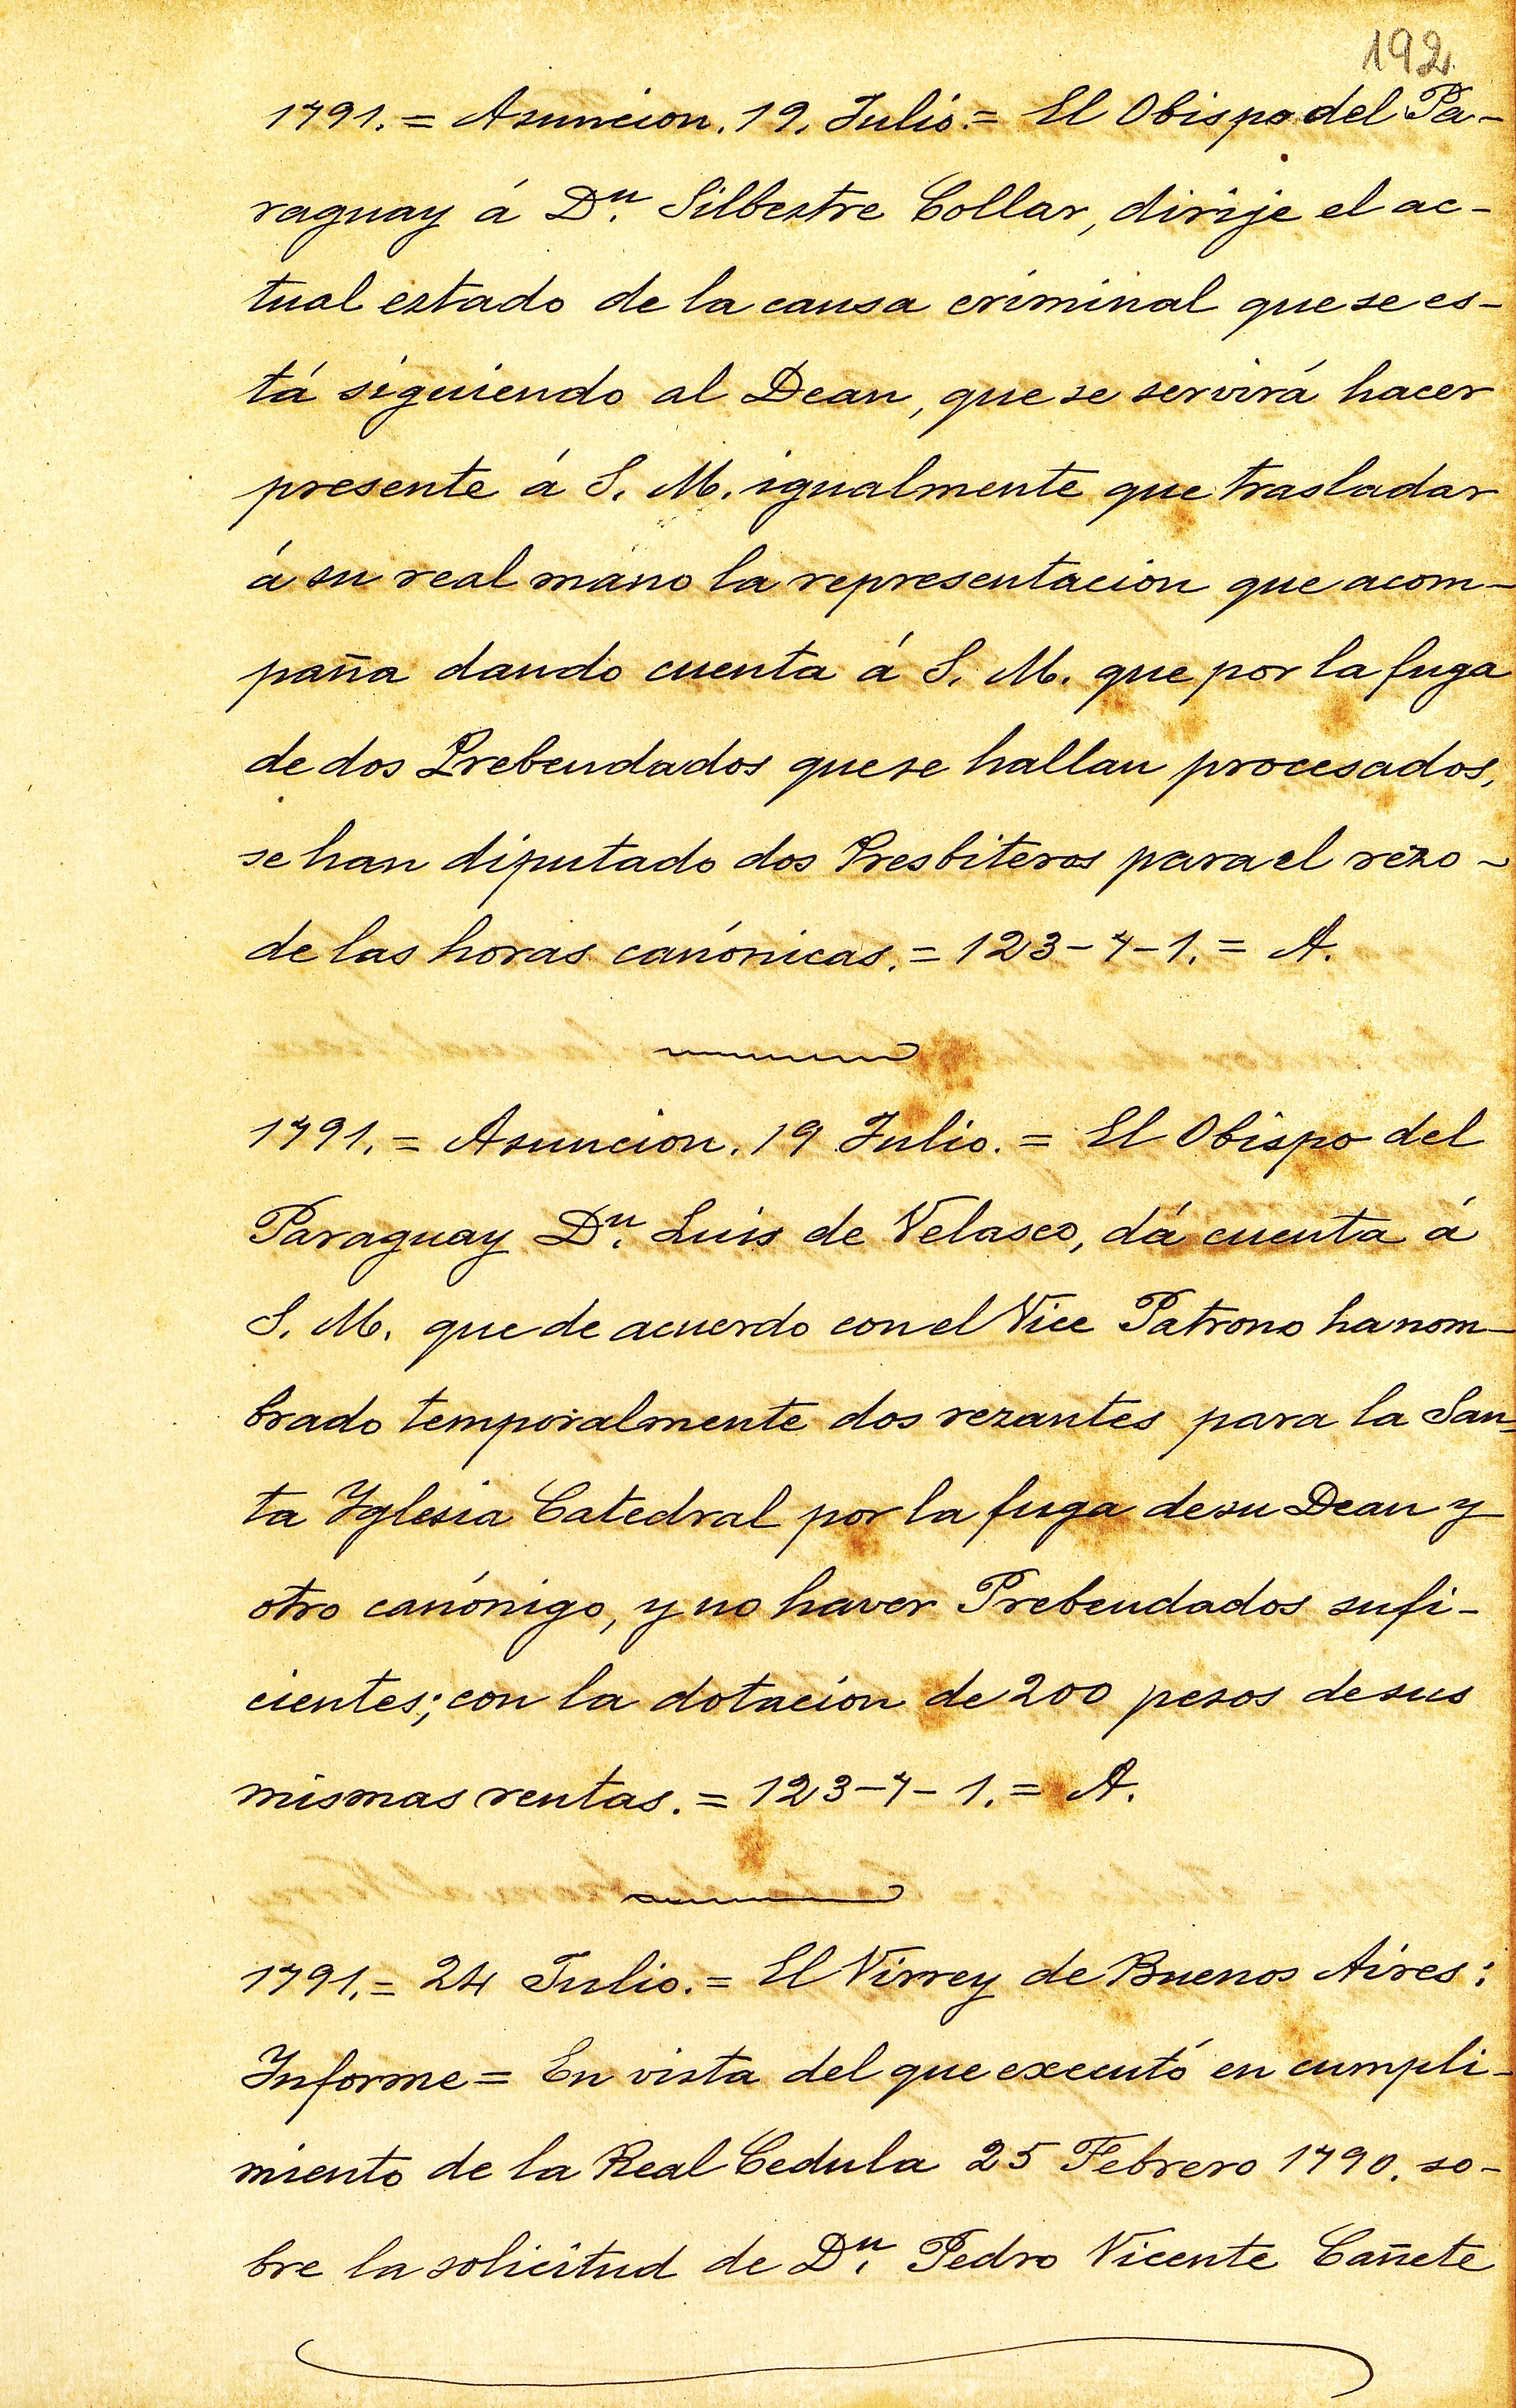 192.
1791. = Asuncion. 19. Julio. = El Obispo del Pa-
raguay á Dn. Silbestre Collar, dirije el ac-
tual estado de la causa criminal que se es-
tá siguiendo al Dean, que se servirá hacer
presente á S. M. igualmente que trasladar
á su real mano la representacion que acom-
paña dando cuenta á S. M. que por la fuga
de dos Prebendados que se hallan procesados,
se han diputado dos Presbiteros para el rezo -
de las horas canónicas. = 123-4-1. = A.
1791. = Asuncion. 19 Julio. = El Obispo del
Paraguay Dn. Luis de Velasco, dá cuenta á
S. M. que de acuerdo con el Vice Patrono ha nom-
brado temporalmente dos rezantes para la San-
ta Yglesia Catedral por la fuga de su Dean y
otro canónigo, y no haver Prebendados sufi-
cientes; con la dotacion de 200 pesos de sus
mismas rentas. = 123-4-1. = A.
1791. = 24 Julio. = El Virrey de Buenos Aires:
Informe = En vista del que executó en cumpli-
miento de la Real Cedula 25 Febrero 1790. so-
bre la solicitud de Dn. Pedro Vicente Cañete